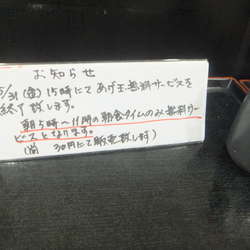 お知らせ
5/31(金)15時にてあげ玉無料サービスを
終了致します。
朝5時〜11時の朝食タイムのみ無料サー
ビスとなります。
(尚 30円にて販売致します)